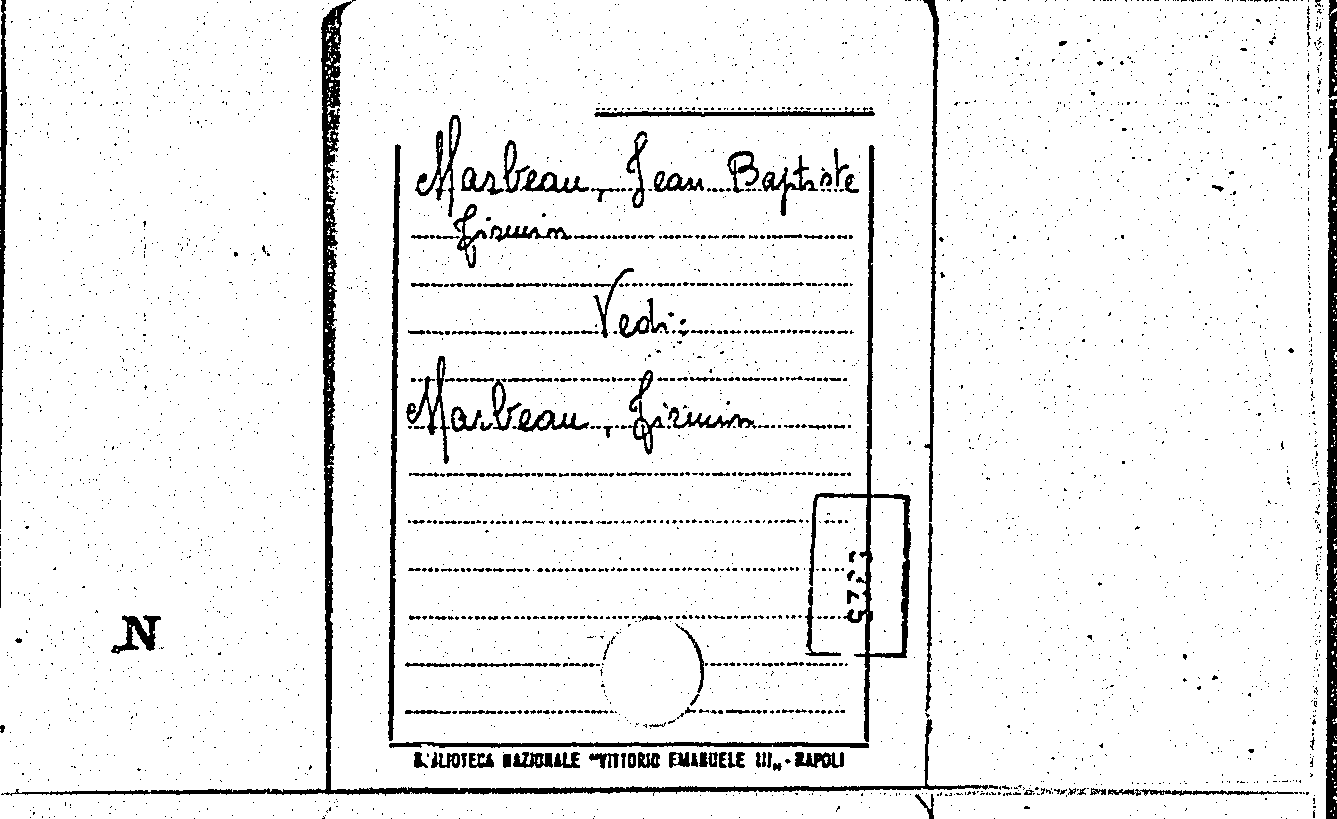 Marbeau, Jean Baptiste
Firmin
Vedi:
Marbeau, Firmin
N
BIBLIOTECA NAZIONALE "VITTORIO EMANUELE III„ - NAPOLI